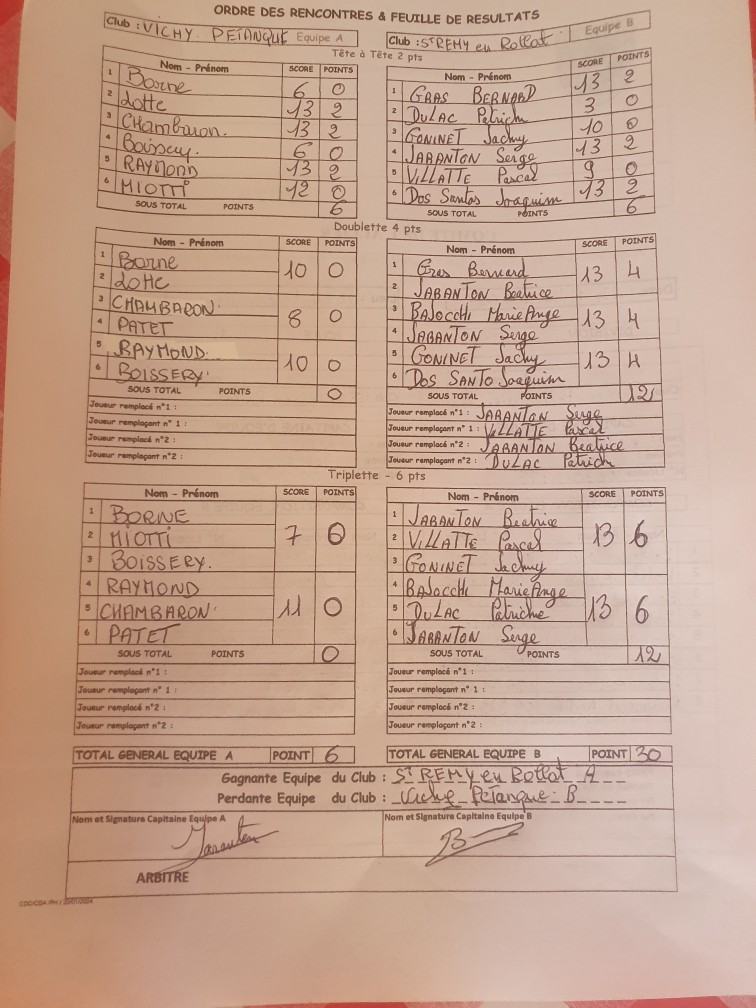 ORDRE DES RENCONTRES & FEUILLE DE RESULTATS
Club : VICHY PETANQUE Equipe A
Club : St REMY en Rollat Equipe B
Tête à Tête 2 pts
Nom - Prénom SCORE POINTS
1 Borne 6 0
2 Lotte 13 2
3 CHambaron. 13 2
4 Boissery. 6 0
5 RAYMOND 13 2
6 MIOTTI 12 0
SOUS TOTAL POINTS 6
Nom - Prénom SCORE POINTS
1 GRAS BERNARD 13 2
2 DULAC Patrich 3 0
3 GONINET Jachy 10 0
4 JABANTON Serge 13 2
5 VILLATTE Pascal 9 0
6 Dos Santos Joaquim 13 2
SOUS TOTAL POINTS 6
Doublette 4 pts
Nom - Prénom SCORE POINTS
1 Borne 10 0
2 Lotte
3 CHAMBARON. 8 0
4 PATET
5 RAYMOND. 10 0
6 BOISSERY.
SOUS TOTAL POINTS 0
Joueur remplacé n°1 :
Joueur remplaçant n° 1 :
Joueur remplacé n°2 :
Joueur remplaçant n°2 :
Nom - Prénom SCORE POINTS
1 Gras Bernard 13 4
2 JABANTON Beatrice
3 BAJOCCHI Marie Ange 13 4
4 JABANTON Serge
5 GONINET Jachy 13 4
6 DOS SANTO Joaquim
SOUS TOTAL POINTS 12
Joueur remplacé n°1 : JABANTON Serge
Joueur remplaçant n° 1 : VILLATTE Pascal
Joueur remplacé n°2 : JABANTON Beatrice
Joueur remplaçant n°2 : DULAC Patrich
Triplette - 6 pts
Nom - Prénom SCORE POINTS
1 BORNE
2 MIOTTI 7 0
3 BOISSERY.
4 RAYMOND
5 CHAMBARON. 11 0
6 PATET
SOUS TOTAL POINTS 0
Joueur remplacé n°1 :
Joueur remplaçant n° 1 :
Joueur remplacé n°2 :
Joueur remplaçant n°2 :
Nom - Prénom SCORE POINTS
1 JABANTON Beatrice
2 VILLATTE Pascal 13 6
3 GONINET Jachy
4 BAJOCCHI Marie Ange
5 DULAC Patriche 13 6
6 JABANTON Serge
SOUS TOTAL POINTS 12
Joueur remplacé n°1 :
Joueur remplaçant n° 1 :
Joueur remplacé n°2 :
Joueur remplaçant n°2 :
TOTAL GENERAL EQUIPE A POINT 6
TOTAL GENERAL EQUIPE B POINT 30
Gagnante Equipe du Club : St REMY en Rollat A
Perdante Equipe du Club : Vichy Petanque B
Nom et Signature Capitaine Equipe A
Nom et Signature Capitaine Equipe B
ARBITRE